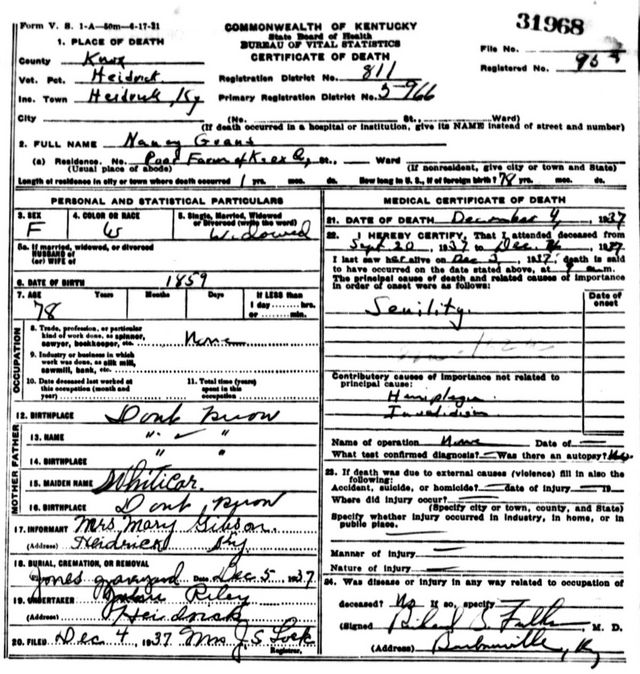 Form V. S. 1-A—50m—4-17-31
COMMONWEALTH OF KENTUCKY
State Board of Health
BUREAU OF VITAL STATISTICS
CERTIFICATE OF DEATH
31968
File No.
Registered No.
1. PLACE OF DEATH
County Knox
Vot. Pct. Heidrick
Inc. Town Heidrick Ky
Registration District No. 811
Primary Registration District No. 5-966
City (No. St., Ward)
(If death occurred in a hospital or institution, give its NAME instead of street and number)
2. FULL NAME Nancy Grant
(a) Residence. No. Poor Farm of Knox Co, St., Ward
(Usual place of abode) (If nonresident, give city or town and State)
Length of residence in city or town where death occurred 1 yrs. mos. ds. How long in U. S., if of foreign birth? 78 yrs. mos. ds.
PERSONAL AND STATISTICAL PARTICULARS
3. SEX F
4. COLOR OR RACE W
5. Single, Married, Widowed or Divorced (write the word) Widowed
5a. If married, widowed, or divorced
HUSBAND of
(or) WIFE of
6. DATE OF BIRTH 1859
7. AGE Years Months Days If LESS than
78 1 day hrs.
or min.
OCCUPATION
8. Trade, profession, or particular
kind of work done, as spinner,
sawyer, bookkeeper, etc. None
9. Industry or business in which
work was done, as silk mill,
sawmill, bank, etc.
10. Date deceased last worked at
this occupation (month and
year)
11. Total time (years)
spent in this
occupation
MOTHER FATHER
12. BIRTHPLACE Dont know
13. NAME " "
14. BIRTHPLACE " "
15. MAIDEN NAME Whiticar.
16. BIRTHPLACE Dont know
17. INFORMANT Mrs. Mary Gibson.
(Address) Heidrick Ky
18. BURIAL, CREMATION, OR REMOVAL
Jones graveyard Date Dec 5 1937
19. UNDERTAKER Riley
(Address) Heidrick
20. FILED Dec 4, 1937 Mrs J. S. Lock
Registrar.
MEDICAL CERTIFICATE OF DEATH
21. DATE OF DEATH December 4, 1937
22. I HEREBY CERTIFY, That I attended deceased from
Sept 20, 1937 to Dec. 1937
I last saw her alive on Dec 3, 1937; death is said
to have occurred on the date stated above, at m.
The principal cause of death and related causes of importance
in order of onset were as follows:
Date of onset
Senility.
Contributory causes of importance not related to
principal cause:
Hemiplegia
Invalidism
Name of operation None Date of
What test confirmed diagnosis? Was there an autopsy? No
23. If death was due to external causes (violence) fill in also the
following:
Accident, suicide, or homicide? date of injury 19
Where did injury occur?
(Specify city or town, county, and State)
Specify whether injury occurred in industry, in home, or in
public place.
Manner of injury
Nature of injury
24. Was disease or injury in any way related to occupation of
deceased? No If so, specify
(Signed) M. D.
(Address) Barbourville, Ky